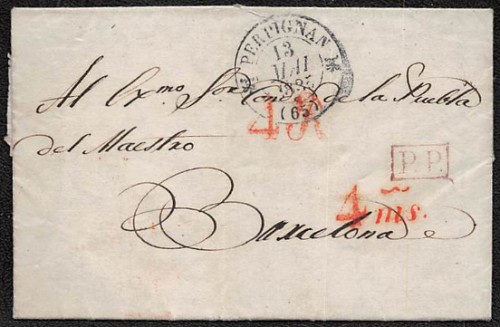 PERPIGNAN
13
MAI
(65)
Al Exmo Sor Conde de la Puebla
4R
del Maestro
P.P.
4 ms.
Barcelona